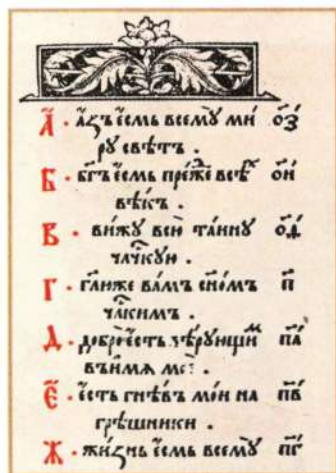 А҃ · а҆́зъ є҆́смь всемꙋ̀ ми ѻ҃з
рꙋ свѣ́тъ .
Б · бг҃ъ є҆́смь пре́жⷣе всѣⷯ ѻ҃и
вѣ́къ .
В · ви́жꙋ всю̀ та́инꙋ ѻ҃д
чл҃чкꙋю .
Г · гл҃ю́же ва́мъ сн҃о́мъ п҃
чл҃ким̾ъ .
Д · добро̀ є҆́сть вѣ́рꙋющиⷨ п҃а
въ и҆́мѧ моѐ .
Є · є҆́сть гнѣ́въ мо́и на п҃в
грѣ́шники .
Ж · жи́знь є҆́смь всемꙋ̀ п҃г